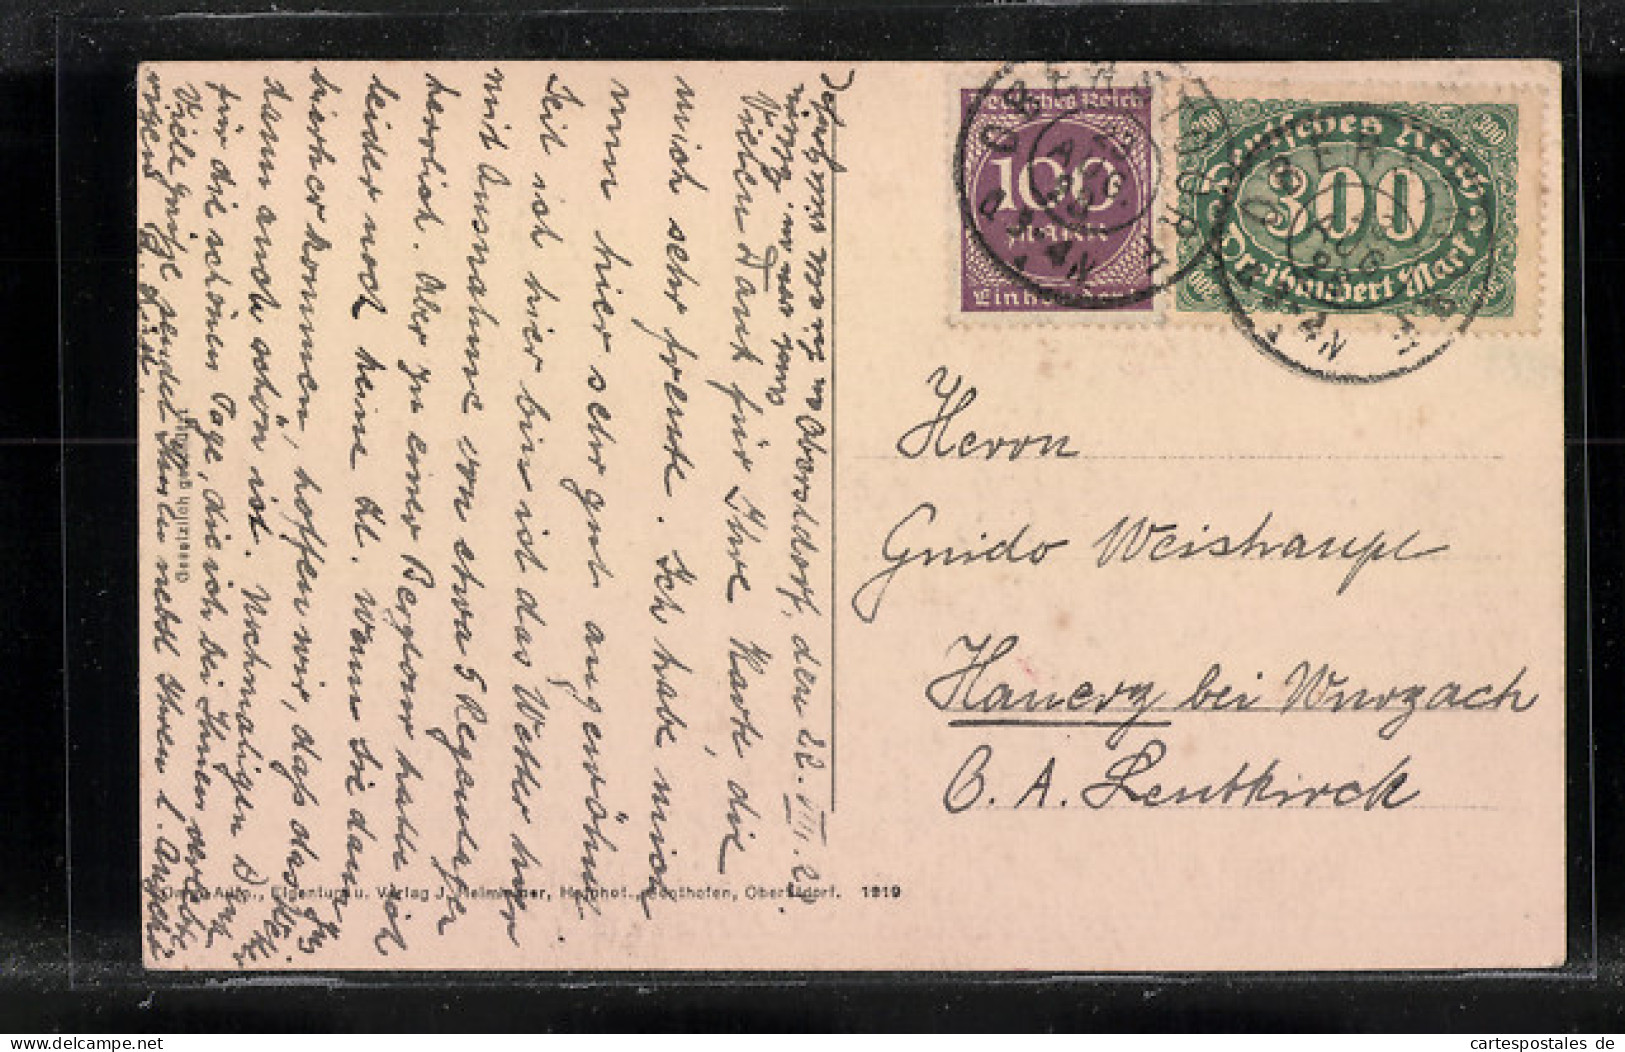 Oberstdorf, den 22. VIII. 23
Vielen Dank für Ihre Karte, die
mich sehr freute. Ich habe mich
nun hier sehr gut angewöhnt.
Seit ich hier bin ist das Wetter hier
mit Ausnahme von etwa 5 Regentagen
herrlich. Aber zu einer Bergtour hatte ich
leider noch keine Zt. Wann Sie dann
hierher kommen, hoffen wir, dass das
dann auch schön ist. Nochmaligen Dank
für die schönen Tage, die ich bei Ihnen
Viele Grüße sendet Ihnen nebst Ihren l. Angehö
rigen
Gesetzlich geschützt
Eigentum u. Verlag J. Heimhuber, Hofphot., Sonthofen, Oberstdorf. 1919
Deutsches Reich
100
Mark
Einhundert
Deutsches Reich
300
Dreihundert Mark
OBERSTDORF
23 AUG
OBERSTDORF
AUG
Herrn
Guido Weishaupt
Hauerz bei Wurzach
O. A. Leutkirch
cartespostales de